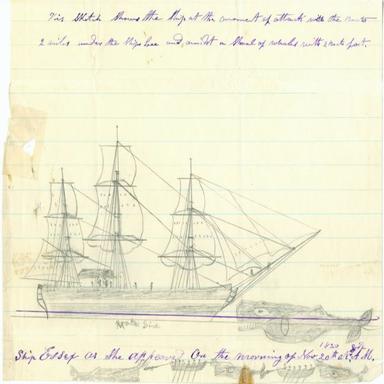 This Sketch Shows the Ship at the moment of attack with the boats
2 miles under the Ships Lee and amidst a Shoal of whales with 2 boats fast.
Ship Essex as She appeared On the morning of Nov 20th 1820 A.M.